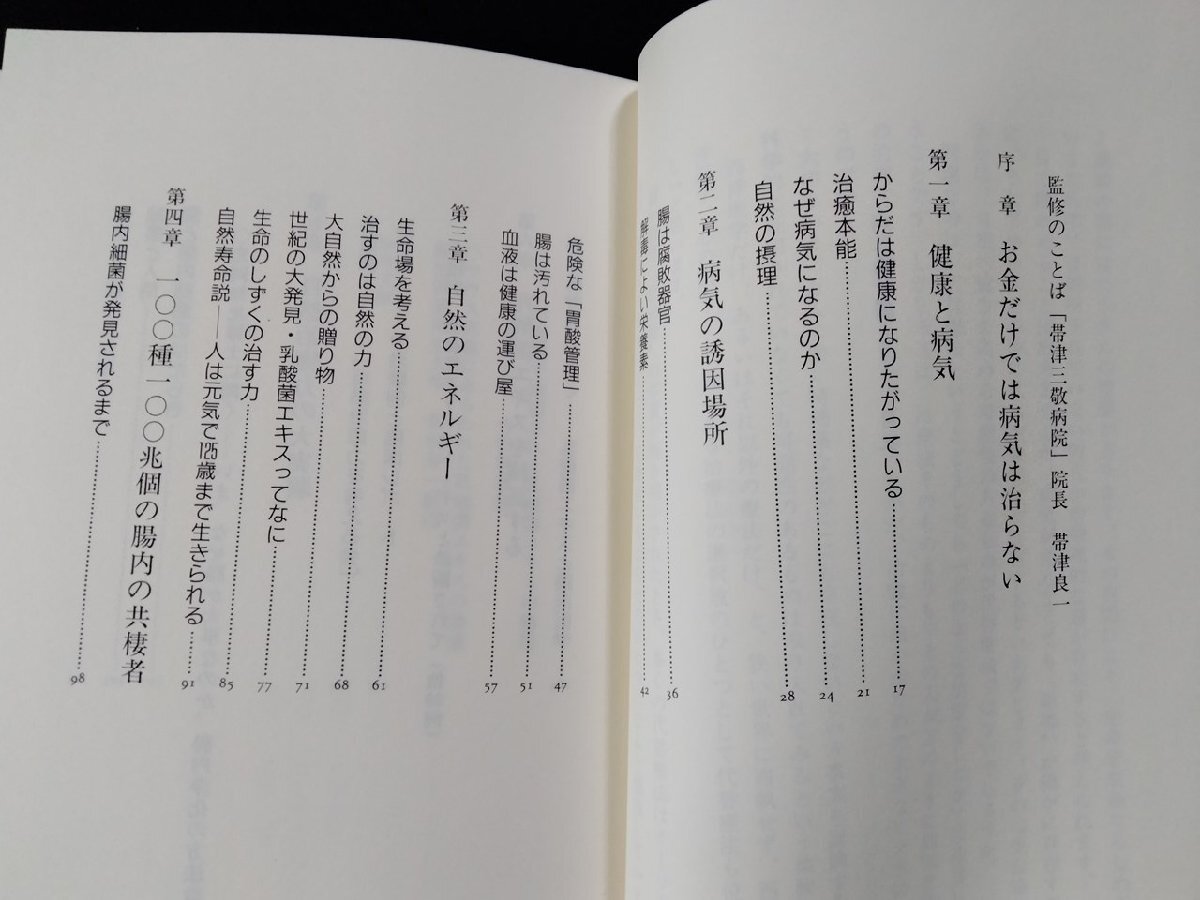 監修のことば「帯津三敬病院」院長　帯津良一
序　章　お金だけでは病気は治らない
第一章　健康と病気
からだは健康になりたがっている……17
治癒本能……21
なぜ病気になるのか……24
自然の摂理……28
第二章　病気の誘因場所
腸は腐敗器官……36
解毒によい栄養素……42
危険な「胃酸管理」……47
腸は汚れている……51
血液は健康の運び屋……57
第三章　自然のエネルギー
生命場を考える……61
治すのは自然の力……68
大自然からの贈り物……71
世紀の大発見・乳酸菌エキスってなに……77
生命のしずくの治す力……85
自然寿命説——人は元気で125歳まで生きられる……91
第四章　一〇〇種一〇〇兆個の腸内の共棲者
腸内細菌が発見されるまで……98